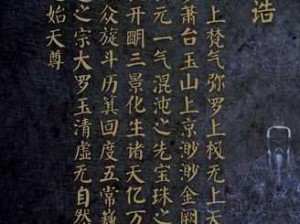 诰
上梵气弥罗上极无上天
萧台玉山上京渺渺金阙
元一气混沌之先宝珠之
开明三景化生诸天亿万
众旋斗历箕回度五常巍
之宗大罗玉清虚无自然
始天尊